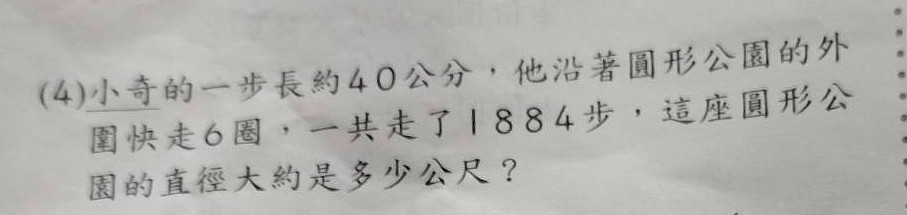 (4)小奇的一步長約40公分，他沿著圓形公園的外
圍快走6圈，一共走了1884步，這座圓形公
園的直徑大約是多少公尺？